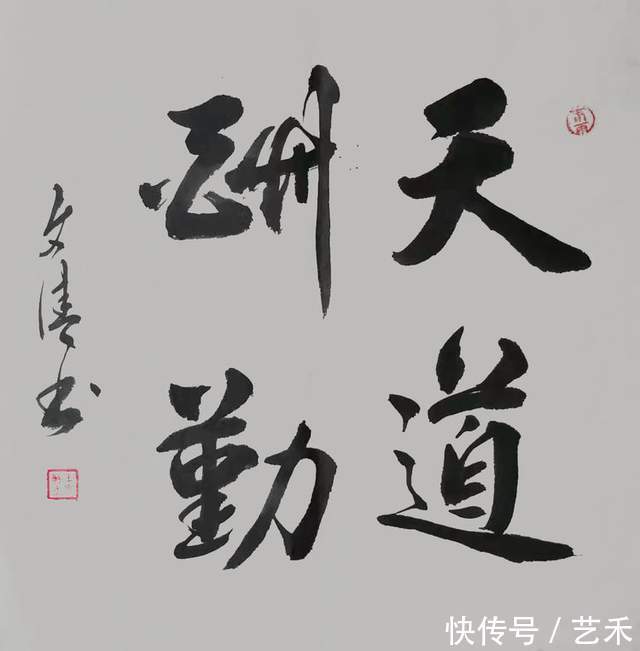 天道
酬勤
文 书
快传号/艺禾